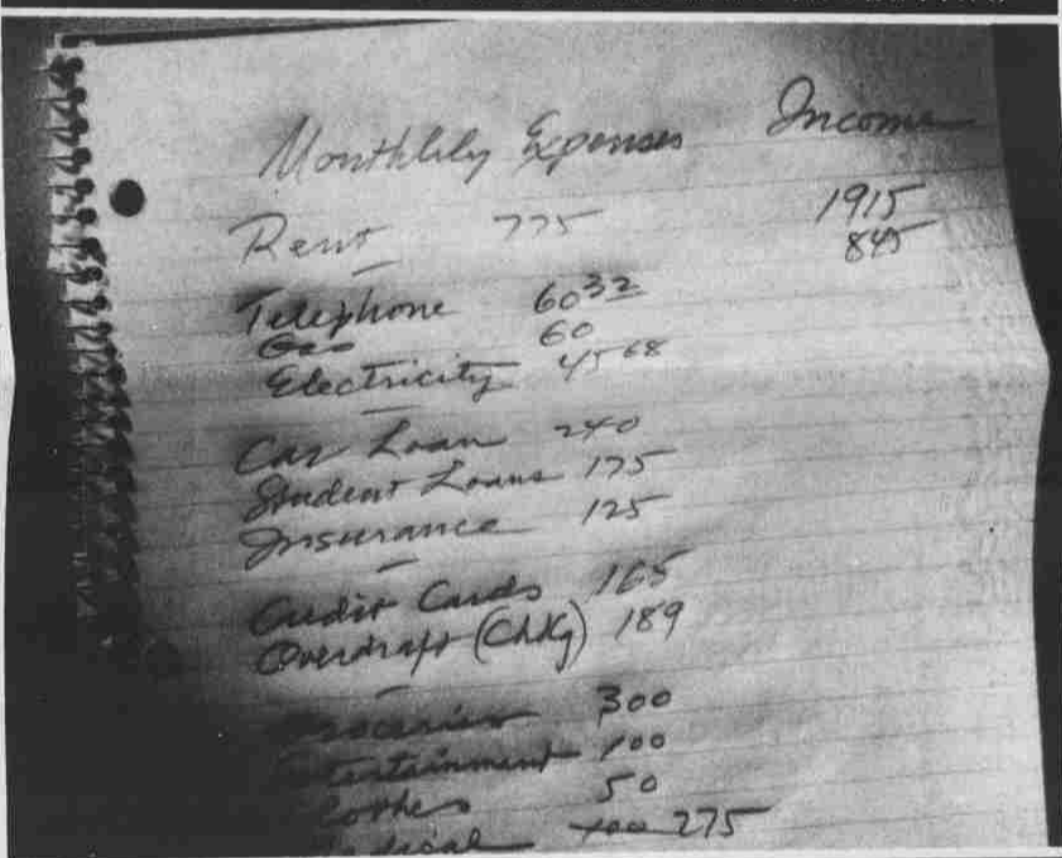 Monthlily Expenses Income
Rent 775 1915
845
Telephone 60 32
Gas 60
Electricity 45 68
Car Loan 240
Student Loans 175
Insurance 125
Credit Cards 165
Overdraft (Chkg) 189
Groceries 300
Entertainment 100
Clothes 50
Medical 275